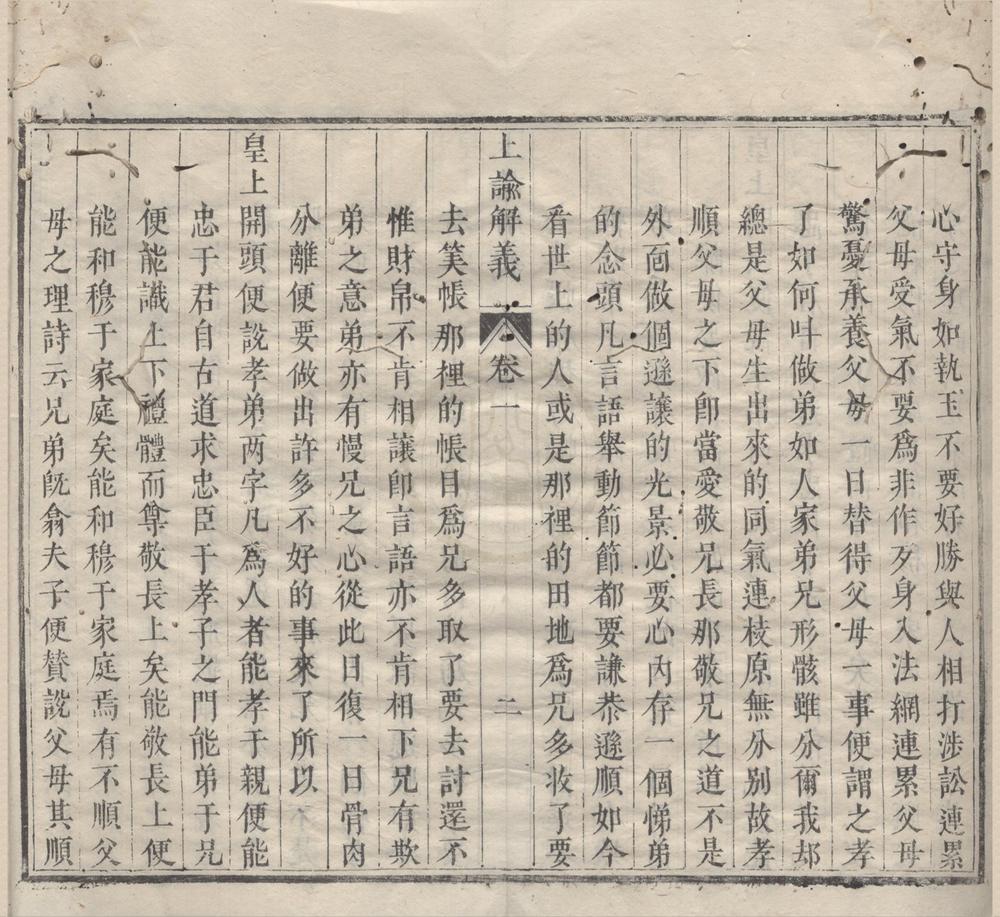 心守身如執玉不要好勝與人相打涉訟連累
父母受氣不要爲非作歹身入法網連累父母
驚憂承養父母一日替得父母一大事便謂之孝
了如何叫做弟如人家弟兄形骸雖分爾我却
總是父母生出來的同氣連棱原無分别故孝
順父母之下卽當愛敬兄長那敬兄之道不是
外面做個遜讓的光景必要心內存一個悌弟
的念頭凡言語舉動節節都要謙恭遜順如今
看世上的人或是那裡的田地爲兄多收了要
上諭解義 卷一 二
去筭帳那裡的帳目爲兄多取了要去討還不
惟財帛不肯相讓卽言語亦不肯相下兄有欺
弟之意弟亦有慢兄之心從此日復一日骨肉
分離便要做出許多不好的事來了所以
皇上開頭便說孝弟两字凡爲人者能孝于親便能
忠于君自古道求忠臣于孝子之門能弟于兄
便能識上下禮體而尊敬長上矣能敬長上便
能和穆于家庭矣能和穆于家庭焉有不順父
母之理詩云兄弟旣翕夫子便贊説父母其順